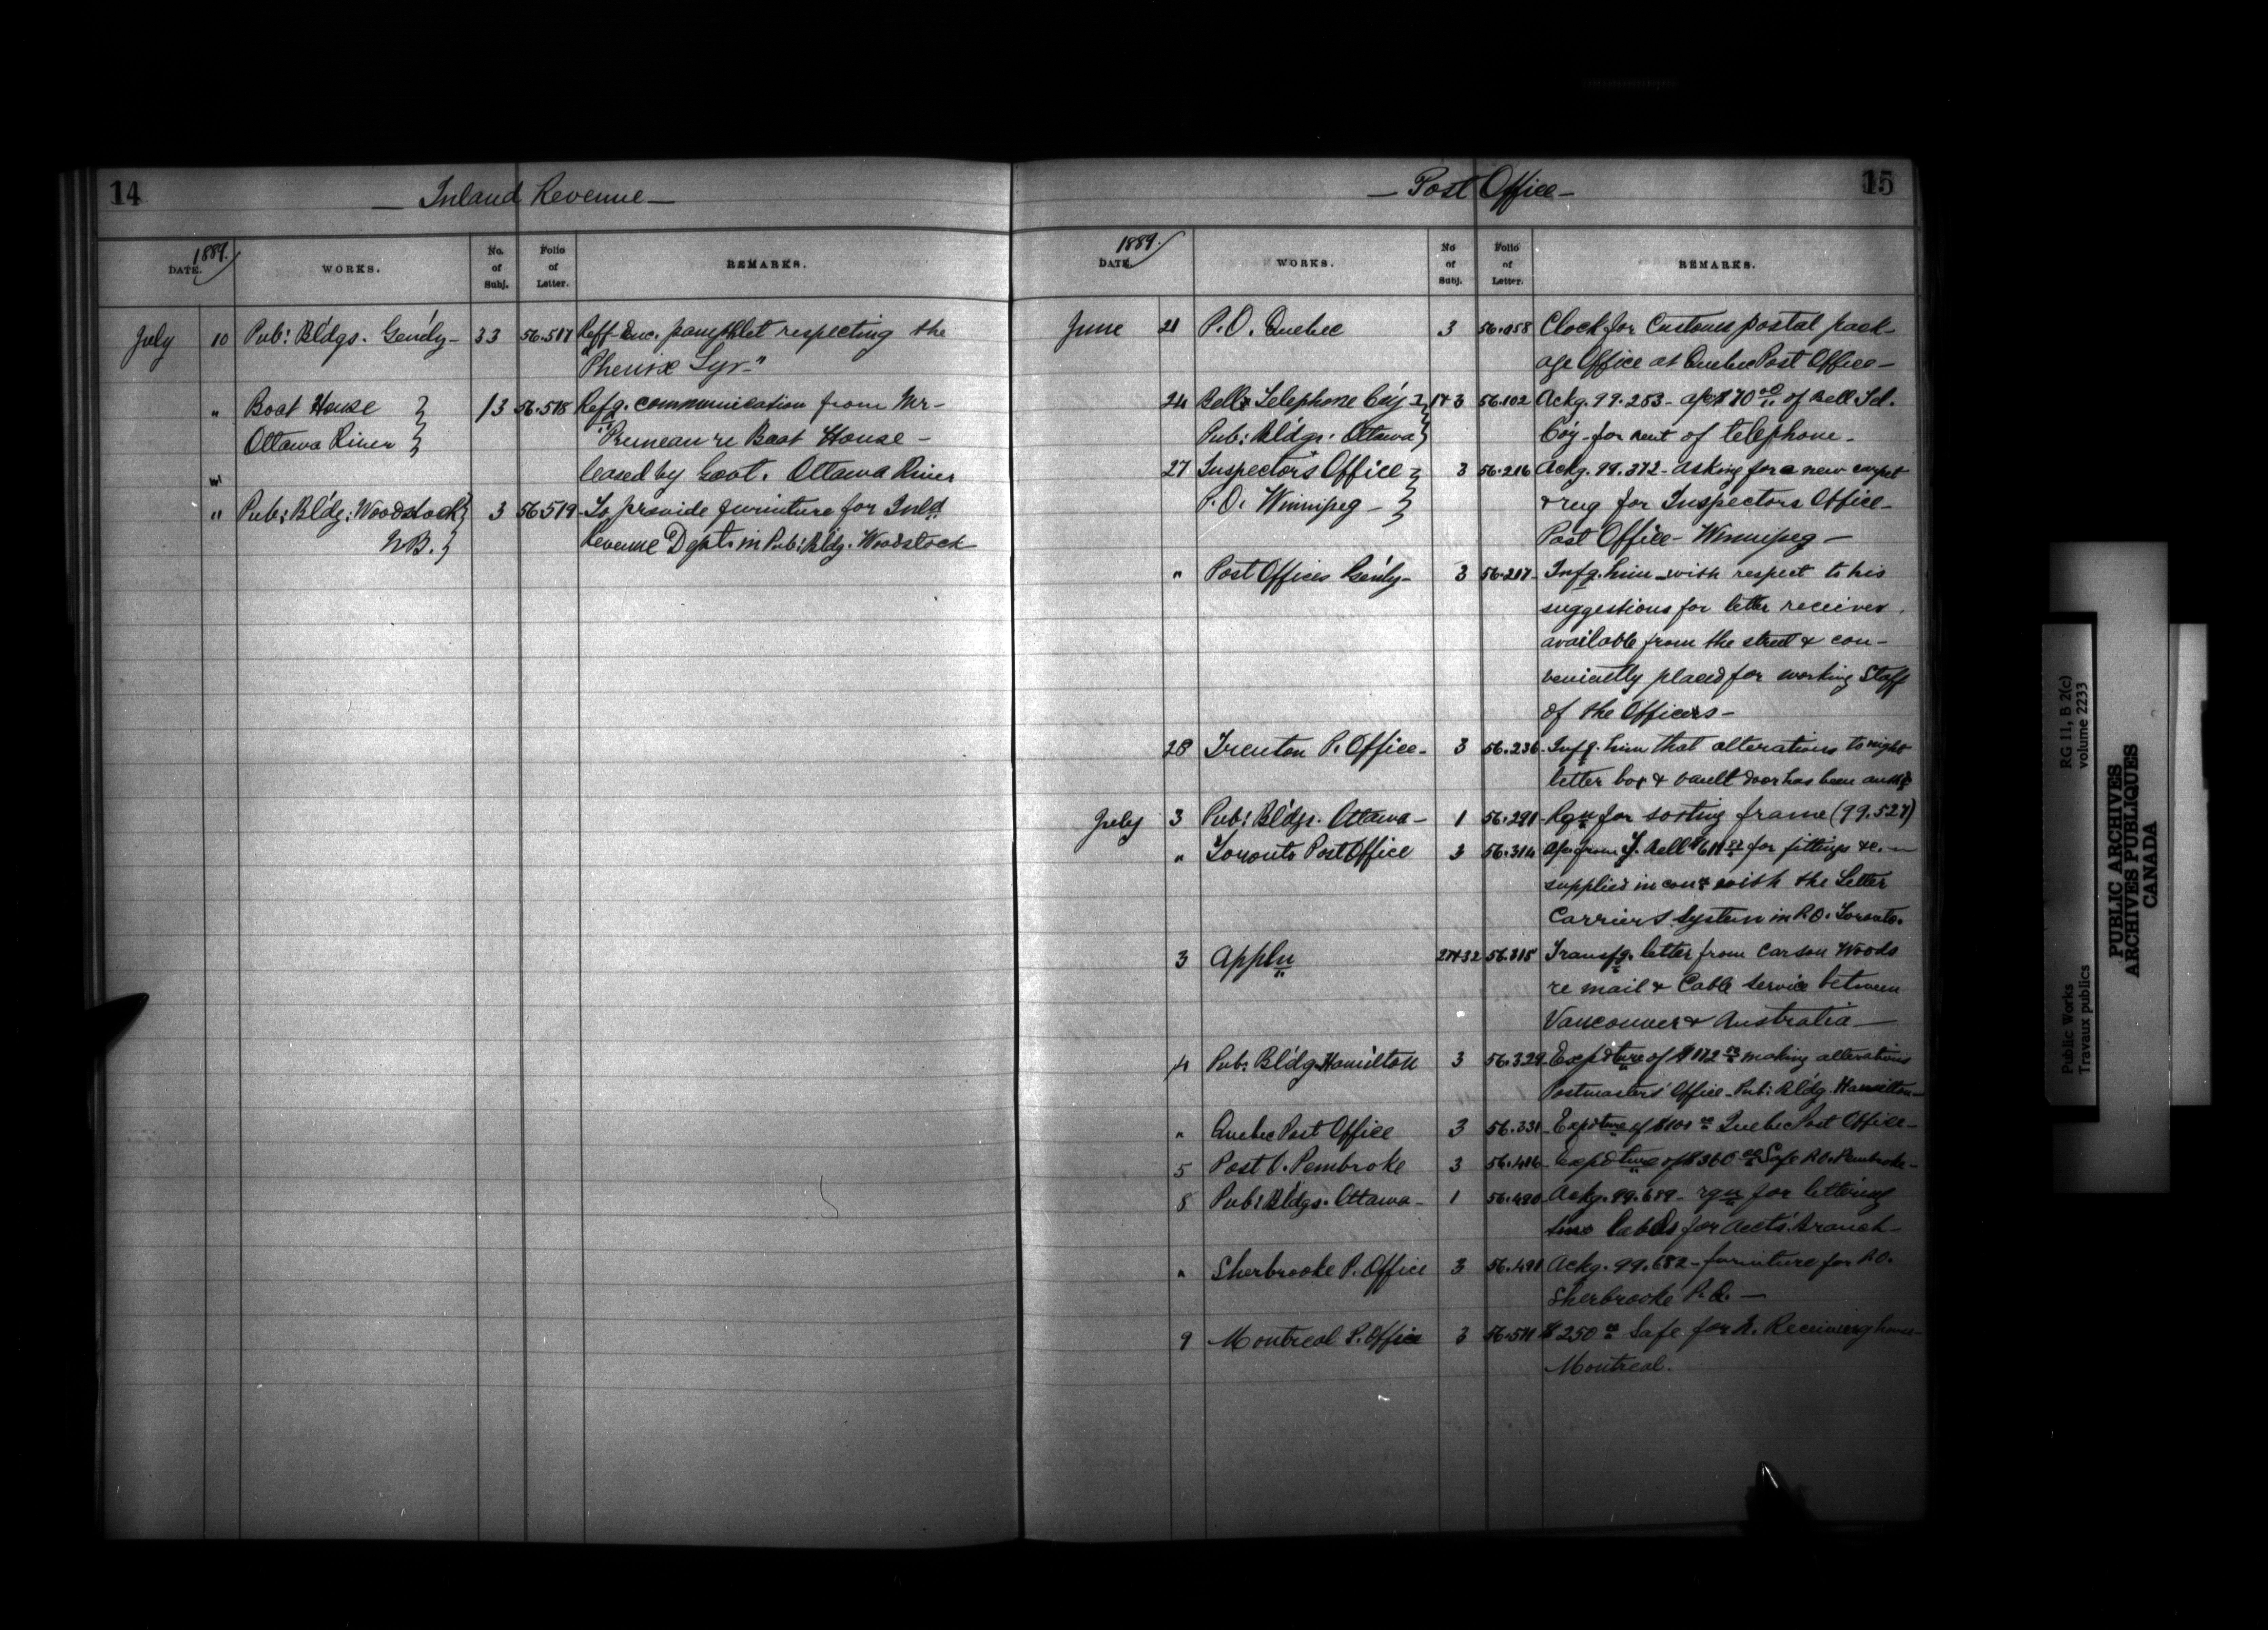 14
— Inland Revenue —
1889.
DATE.
WORKS.
No. of Subj.
Folio of Letter.
REMARKS.
July 10 Pub: Bldgs. Gen'ly - 33 56.517 Reff Enc. pamphlet respecting the
"Phenix
" Boat House } 13 56.518 Refg. communication from Mr -
Ottawa River } Pruneau re Boat House -
leased by Govt. Ottawa River
" Pub: Bldg: Woodstock } 3 56.519 - To provide furniture for Inld
N.B. } Revenue Dept. in Pub: Bldg. Woodstock
15
— Post Office —
1889.
DATE.
WORKS.
No of Subj.
Folio of Letter.
REMARKS.
June 21 P.O. Quebec 3 56.058 Clock for Customs postal pack-
age Office at Quebec Post Office -
24 Bell Telephone Co'y } 1 & 3 56.102 Ackg. 99.253 - a/c $70 00 of Bell Tel.
Pub: Bldgs. Ottawa } Co'y - for rent of telephone -
27 Inspector's Office - } 3 56.216 Ackg. 99.372 - asking for a new carpet
P.O. Winnipeg - } & rug for Inspectors Office -
Post Office - Winnipeg -
" Post Offices Gen'ly - 3 56.217 - Infg. him with respect to his
suggestions for letter receiver
available from the street & con-
veniently placed for working Staff
of the Officers -
28 Trenton P. Office - 3 56.236 - Infg. him that alterations to night
letter box & vault door has been
July 3 Pub: Bldgs. Ottawa - 1 56.291 - Rqn for sorting frame (99.527)
" Toronto Post Office 3 56.314 a/c from Bell for fittings &c. -
supplied in con with the Letter
Carriers System in P.O. Toronto.
3 Appln 27 & 32 56.315 Transfg. letter from Carson Woods
re mail & Cable service between
Vancouver & Australia -
4 Pub: Bldg Hamilton 3 56.329 - Expdture of $172 making alterations
Postmasters' Office - Pub: Bldg. Hamilton -
" Quebec Post Office 3 56.331 - Expdture of Quebec Post Office -
5 Post O. Pembroke 3 56.416 - Expdture of $360 00 Safe P.O. Pembroke -
8 Pub: Bldgs. Ottawa - 1 56.490 - Ackg. 99.689 - rqn for lettering
labels for Accts. branch -
" Sherbrooke P. Office 3 56.491 Ackg. 99.682 - furniture for P.O.
Sherbrooke P.Q. -
9 Montreal P. Office 3 56.511 $250 00 Safe for Receiving house -
Montreal.
Public Works RG 11, B 2(c)
Travaux publics volume 2233
PUBLIC ARCHIVES
ARCHIVES PUBLIQUES
CANADA